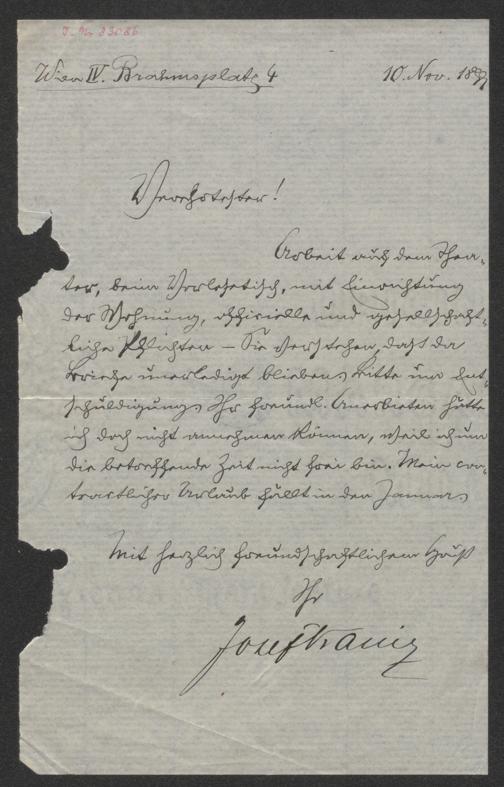 J. Nr 83086
Wien IV. Brahmsplatz 4 10. Nov. 1899
Verehrtester!
Arbeit auf dem Thea-
ter, beim Vorlesetisch, mit Einrichtung
der Wohnung, officielle und gesellschaft-
liche Pflichten – Sie verstehen, daß da
Briefe unerledigt blieben. Bitte um Ent-
schuldigung. Ihr freundl. Anerbieten hätte
ich doch nicht annehmen können, weil ich um
die betreffende Zeit nicht frei bin. Mein con-
tractlicher Urlaub fällt in den Januar.
Mit herzlich freundschaftlichem Gruß
Ihr
Josef Kainz